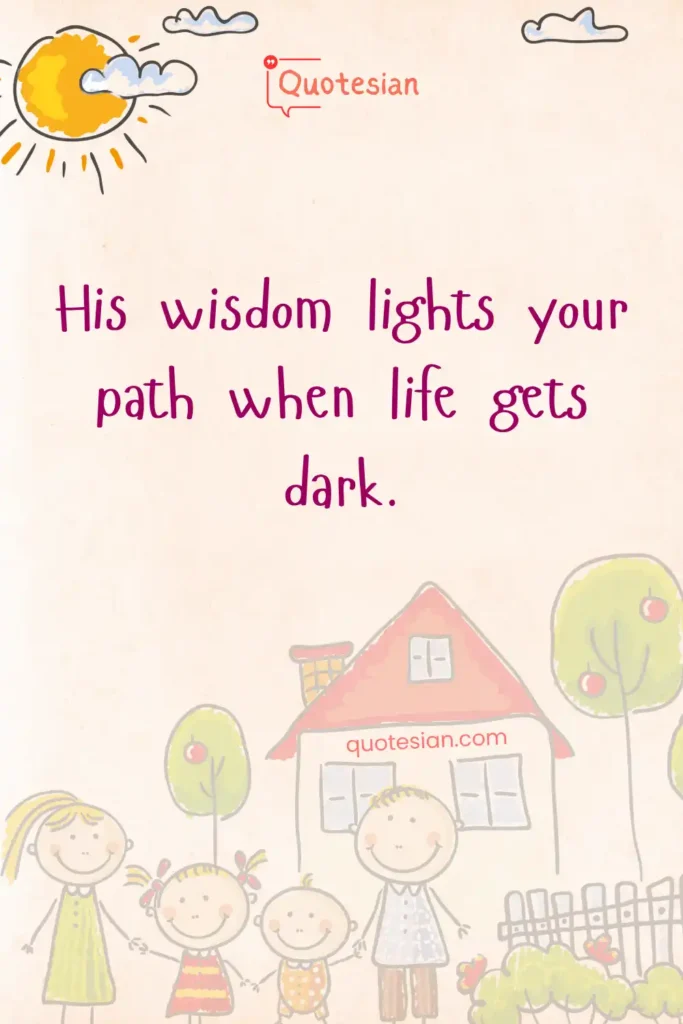 Quotesian
His wisdom lights your
path when life gets
dark.
quotesian.com